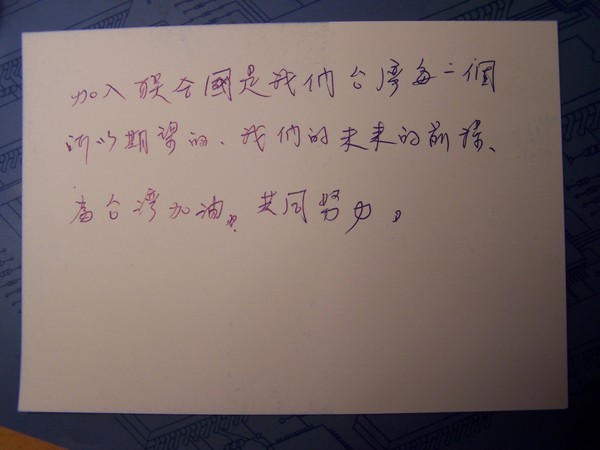 加入联合國是我們台湾每一個
所以期望的、我們的未来的前課、
為台湾加油，共同努力。